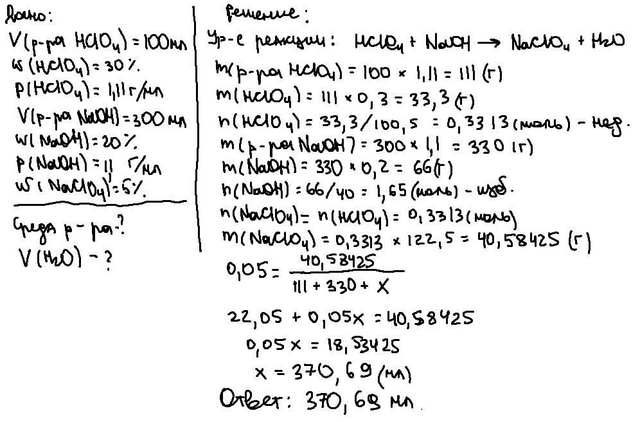 Дано:
V(р-ра HClO₄) = 100 мл
w(HClO₄) = 30%
р(HClO₄) = 1,11 г/мл
V(р-ра NaOH) = 300 мл
w(NaOH) = 20%
р(NaOH) = 1,1 г/мл
w(NaClO₄) = 5%
Среда р-ра-?
V(H₂O) - ?
Решение:
Ур-е реакции: HClO₄ + NaOH → NaClO₄ + H₂O
m(р-ра HClO₄) = 100 × 1,11 = 111 (г)
m(HClO₄) = 111 × 0,3 = 33,3 (г)
n(HClO₄) = 33,3/100,5 = 0,3313 (моль) - нед.
m(р-ра NaOH) = 300 × 1,1 = 330 (г)
m(NaOH) = 330 × 0,2 = 66 (г)
n(NaOH) = 66/40 = 1,65 (моль) - изб.
n(NaClO₄) = n(HClO₄) = 0,3313 (моль)
m(NaClO₄) = 0,3313 × 122,5 = 40,58425 (г)
0,05 = 40,58425 / 111 + 330 + x
22,05 + 0,05x = 40,58425
0,05x = 18,53425
x = 370,69 (мл)
Ответ: 370,69 мл.